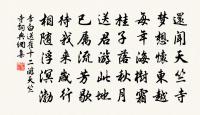 還聞天竺寺
夢想懷東越
每年海樹霜
桂子落秋月
送君遊此地
已屬流芳歇
待我來歲行
相隨浮溟渤
李白送崔十二游天竺
寺